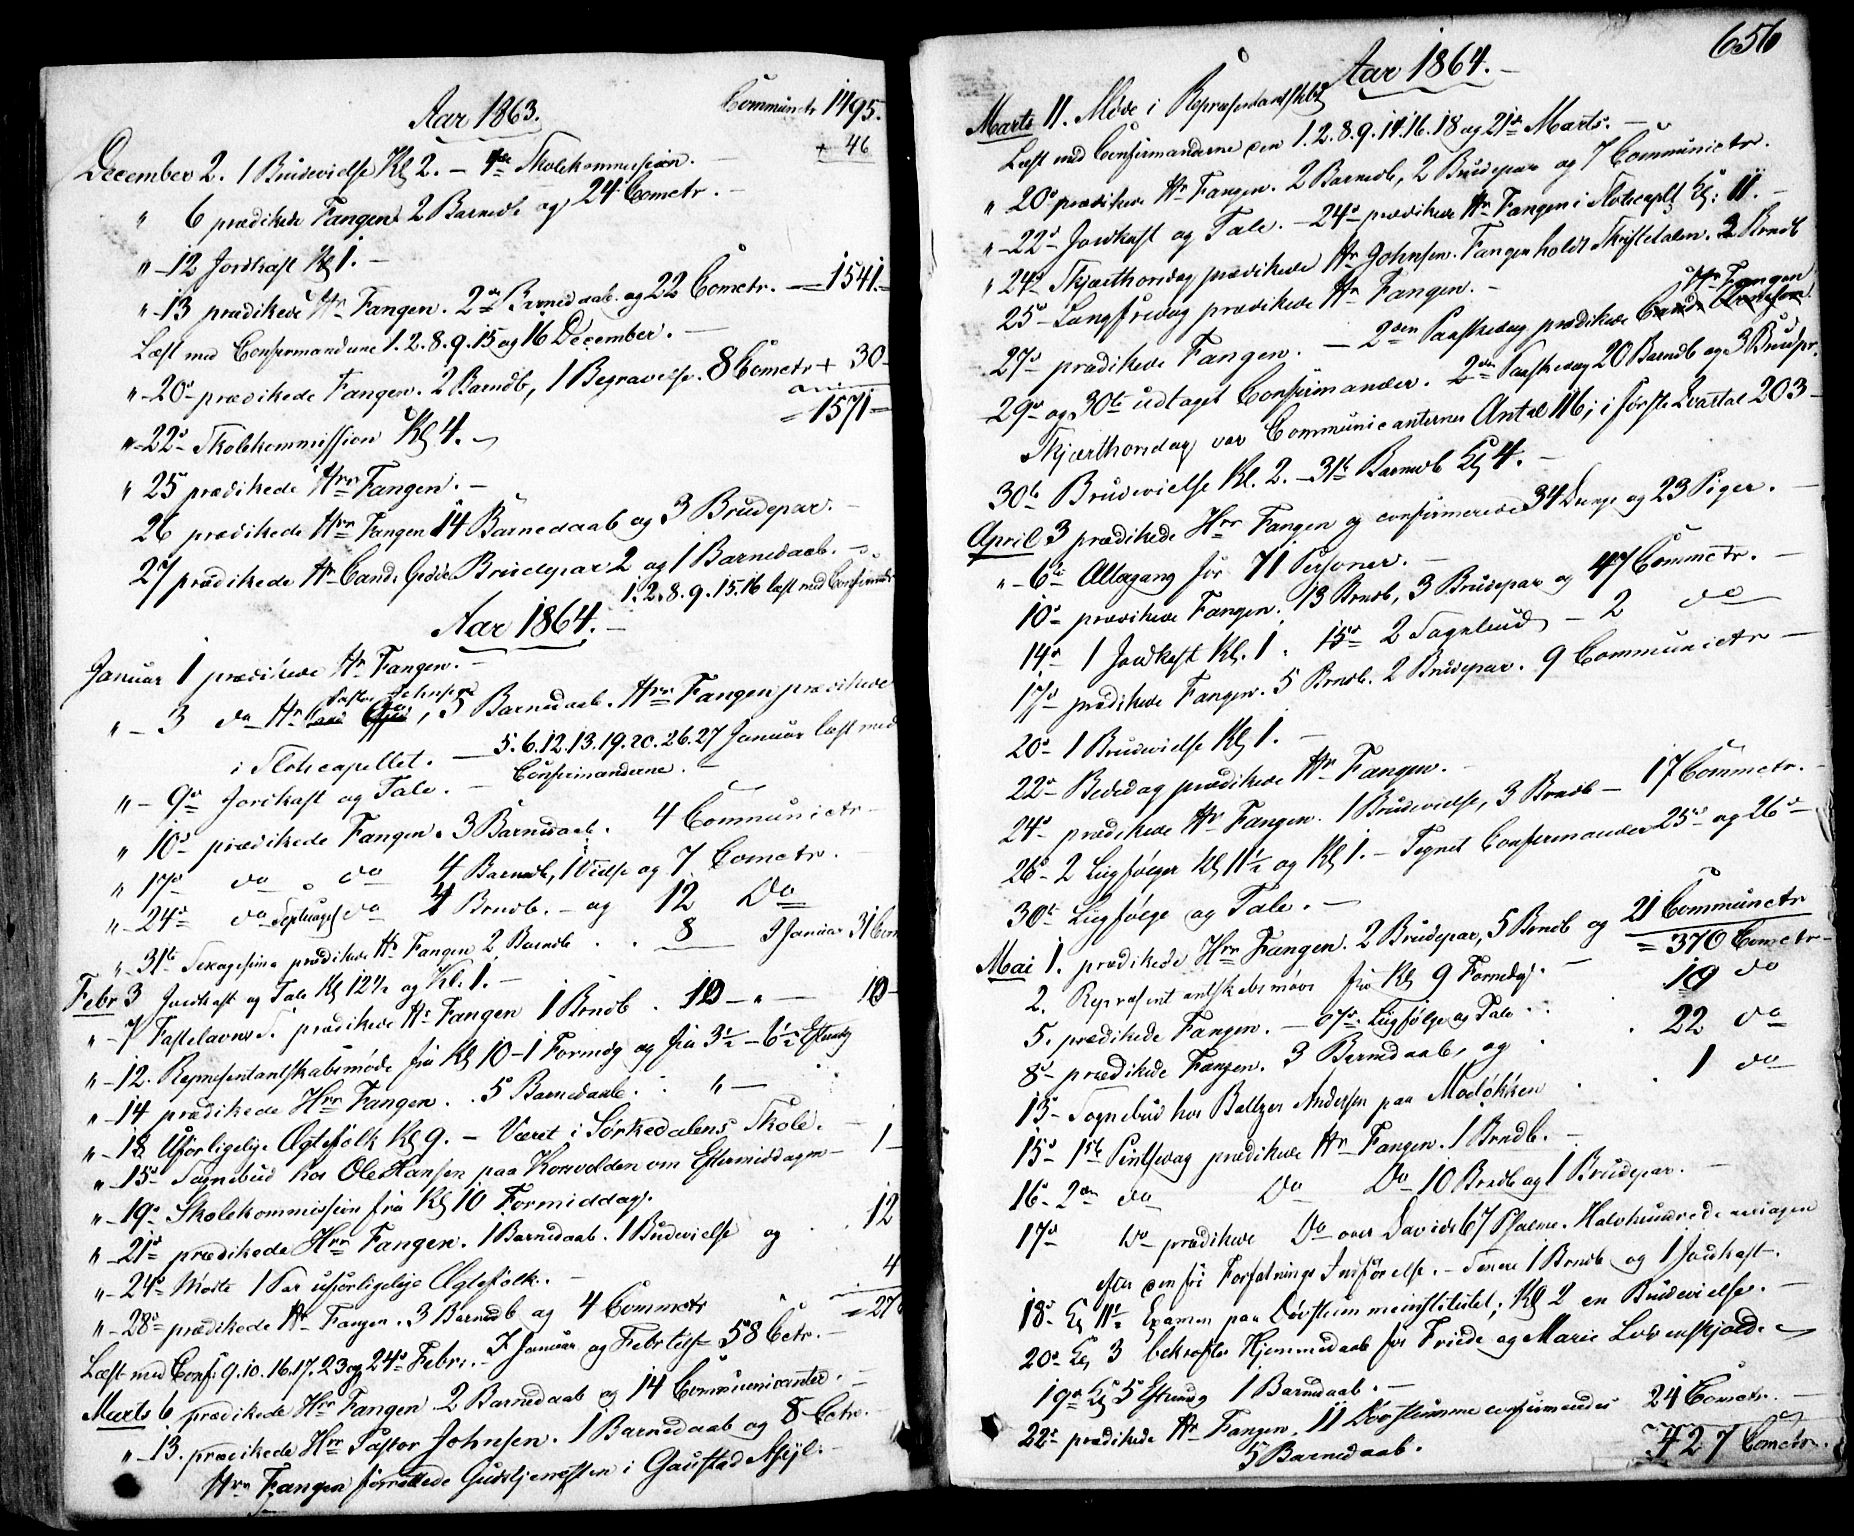 Aar 1863.
Communctr 1495.
+ 46
December 2. 1 Brudevielse Kl 2. — Skolekommission. —
" 6 prædikede Fangen 2 Barnedb og 24 Cometr. —
" — 12 Jordkast Kl 1. —
" — 13 prædikede Hr Fangen. 2 Barnedaab og 22 Cometr. — = 1541. =
Læst med Confirmanderne 1. 2. 8. 9. 15 og 16 December. —
" — 20 prædikede Fangen. 2 Barndb, 1 Begravelse. 8 Cometr + 30 —
= 1571 —
" — 22 Skolekommission Kl 4. —
" 25 prædikede Hrr Fangen. —
26 prædikede Hrr Fangen 14 Barnedaab og 3 Brudepar. —
27 prædikede Hr Cand. Brudepar 2 og 1 Barnedaab. —
1. 2. 8. 9. 15. 16 læst med Confirmde
Aar 1864. —
Januar 1 prædikede Hr Fangen. —
Pastor Johnsen
" — 3 do Hr, 5 Barnedaab. Hrr Fangen prædikede
i Slotscapellet. — 5. 6. 12. 13. 19. 20. 26. 27 Januar læst med
" — 9 Jordkast og Tale. — Confirmanderne. —
" 10 prædikede Fangen. 3 Barnedaab. 4 Communictr —
" 17 do do 4 Barnedb, 1 Vielse og 7 Cometr.
" — 24 do Septuages do 4 Brndb. — og 12 Do
" — 31te Sexagesima prædikede Hr Fangen 2 Barndb . . 8 I Januar 31 Com
Febr 3 Jordkast og Tale Kl 12½ og Kl. 1. —
" — 7 Fastelavns S. prædikede Hr Fangen 1 Brndb . 10 — " — 10 —
" — 12. Repræsentantskabsmøde fra Kl 10 — 1 Formdg og fra 3½ — 6½ Eftmdg
" — 14 prædikede Hrr Fangen . . 5 Barnedaab . " —
" — 18 Uforligelige Ægtefolk Kl 9. — Været i Sørkedalens Skole. —
" — 15 Sognebud hos Ole Hansen paa Korsvolden om Eftermiddagen — 1 —
" — 19 Skolekommission fra Kl 10 Formiddag.
" — 21 prædikede Hrr Fangen. 1 Barnedaab. 1 Brudevielse og . . 12
" — 24 Mødte 1 Par uforligelige Ægtefolk. — 4
" — 28 prædikede Hr Fangen. 3 Barnedb og 4 Commctr = 27
Læst med Conf. 9. 10. 16. 17. 23 og 24 Febr. — I Januar og Febr tils 58 Cctr. —
Marts 6 prædikede Hrr Fangen 2 Barnedaab og 14 Communicanter. —
" — 13. prædikede Hrr Pastor Johnsen. 1 Barnedaab og 8 Cctr. —
Hrr Fangen forrettede Gudstjenesten i Gaustad Asyl. —
656
Aar 1864. —
Marts 11. Møde i Repræsentantskbt
Læst med Confirmanderne den 1. 2. 8. 9. 14. 16. 18 og 21 Marts. —
" 20 prædikede Hr Fangen. 2 Barnedb, 2 Brudepar og 7 Communictr.
" — 22 Jordkast og Tale. — 24 prædikede Hr Fangen i Slotscaplt Kl: 11. —
" 24 Skjærthorsdag prædikede Hr Johnsen. Fangen holdt Skriftetalen. 2 Brndb
25 — Langfredag prædikede Hr Fangen. —
Hr Fangen
27 prædikede Fangen. — 2den Paaskedag prædikede
29 og 30te udtaget Confirmander. 2den Paaskedag 20 Barndb og 3 Brudpr.
Skjærthorsdag var Communicanternes Antal 116; i første Qvartal 203 —
30te Brudevielse Kl. 2. — 31te Barnedb Kl 4. —
April 3 prædikede Hrr Fangen og confirmerede 34 Drenge og 23 Piger. —
" — 6te Altergang for 71 Personer. —
10 prædikede Fangen. 13 Brndb, 3 Brudepar og 47 Commctr. —
14 1 Jordkast Kl. 1. 15 2 Sognebud — 2 do
17 prædikede Fangen. 5 Brndb. 2 Brudepar. 9 Communictr —
20 1 Brudevielse Kl 1. —
22 Bededag prædikede Hr Fangen. —
24 prædikede Hr Fangen. 1 Brudevielse, 3 Brndb — 17 Commctr. —
26 — 2 Liigfølger Kl 11½ og Kl 1. — Tegnet Confirmander 25 og 26
30te Liigfølge og Tale. —
Mai 1. prædikede Hrr Fangen. 2 Brudepar, 5 Brndb og 21 Communctr
= 370 Cometr —
2. Repræsentantskabsmøde fra Kl 9 Formdg. — 19 do
5. prædikede Fangen. — Liigfølge og Tale . . 22 do
8 prædikede Fangen. 3 Barnedaab, og . . 1 do
13 — Sognebud hos Baltzer Andersen paa
15 1ste Pintsedag prædikede Hr Fangen. 1 Brndb. —
16 — 2den do Do Do 10 Brndb og 1 Brudepar. —
17 Do prædikede Do over Davids 67 Psalme. Halvhundrede
efter den fri Forfatnings Indførelse. — 1 Brndb og 1 Jordkast. —
18 — Kl 11 Examen paa Døvstummeinstitutet; Kl 2 en Brudevielse. —
20 Kl 3 bekræftet Hjemmedaab for Friede og Marie Løvenskjold. —
19 Kl 5 Eftmdg 1 Barnedaab. —
22 prædikede Hr Fangen. 11 Døvstumme confirmandes 24 Cometr. —
5 Barnedaab.
427 Cometr.